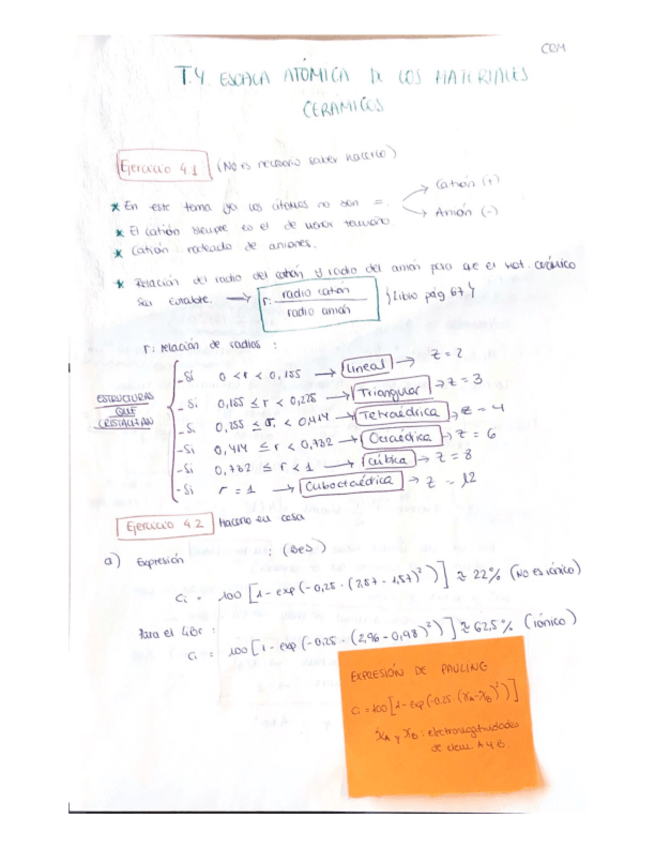 COM
T.4 ESCALA ATÓMICA DE LOS MATERIALES
CERÁMICOS
Ejercicio 4.1 (No es necesario saber hacerlo)
* En este tema ya los átomos no son =. Catión (+)
Anión (-)
* El catión siempre es el de menor tamaño
* Catión: rodeado de aniones.
* Relación del radio del catión y radio del anión para que el mat. cerámico
sea estable. → r: radio catión / radio anión {Libro pág 67}
r: relación de radios :
ESTRUCTURAS
QUE
CRISTALIZAN
- Si 0 < r < 0,155 → Lineal → Z = 2
- Si 0,155 ≤ r < 0,225 → Triangular → Z = 3
- Si 0,255 ≤ r < 0,414 → Tetraédrica → Z = 4
- Si 0,414 ≤ r < 0,732 → Octaédrica → Z = 6
- Si 0,732 ≤ r < 1 → Cúbica → Z = 8
- Si r = 1 → Cuboctaédrica → Z = 12
Ejercicio 4.2 Hacerlo en casa
a) Expresión : (BeS)
Ci = 100 [1 - exp (-0,25 · (2,57 - 1,57)²)] ≈ 22% (No es iónico)
Para el LiBr :
Ci = 100 [1 - exp (-0,25 · (2,96 - 0,98)²)] ≈ 62,5% (iónico)
EXPRESIÓN DE PAULING
Ci = 100 [1 - exp (-0,25 · (XA - XB)²)]
XA y XB : electronegatividades
de elem. A y B.